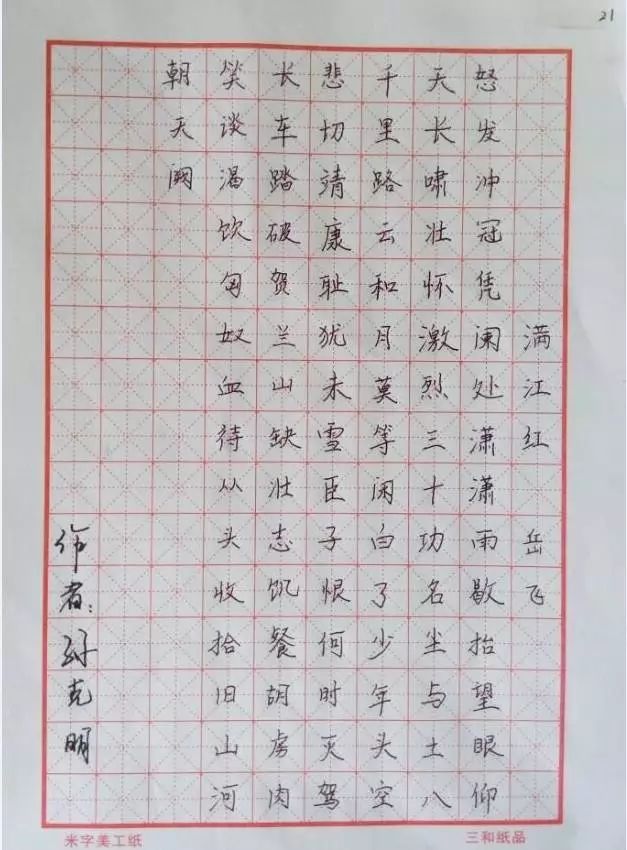 21
满江红 岳飞
怒发冲冠凭阑处潇潇雨歇抬望眼仰
天长啸壮怀激烈三十功名尘与土八
千里路云和月莫等闲白了少年头空
悲切靖康耻犹未雪臣子恨何时灭驾
长车踏破贺兰山缺壮志饥餐胡虏肉
笑谈渴饮匈奴血待从头收拾旧山河
朝天阙
作者：克明
米字美工纸
三和纸品